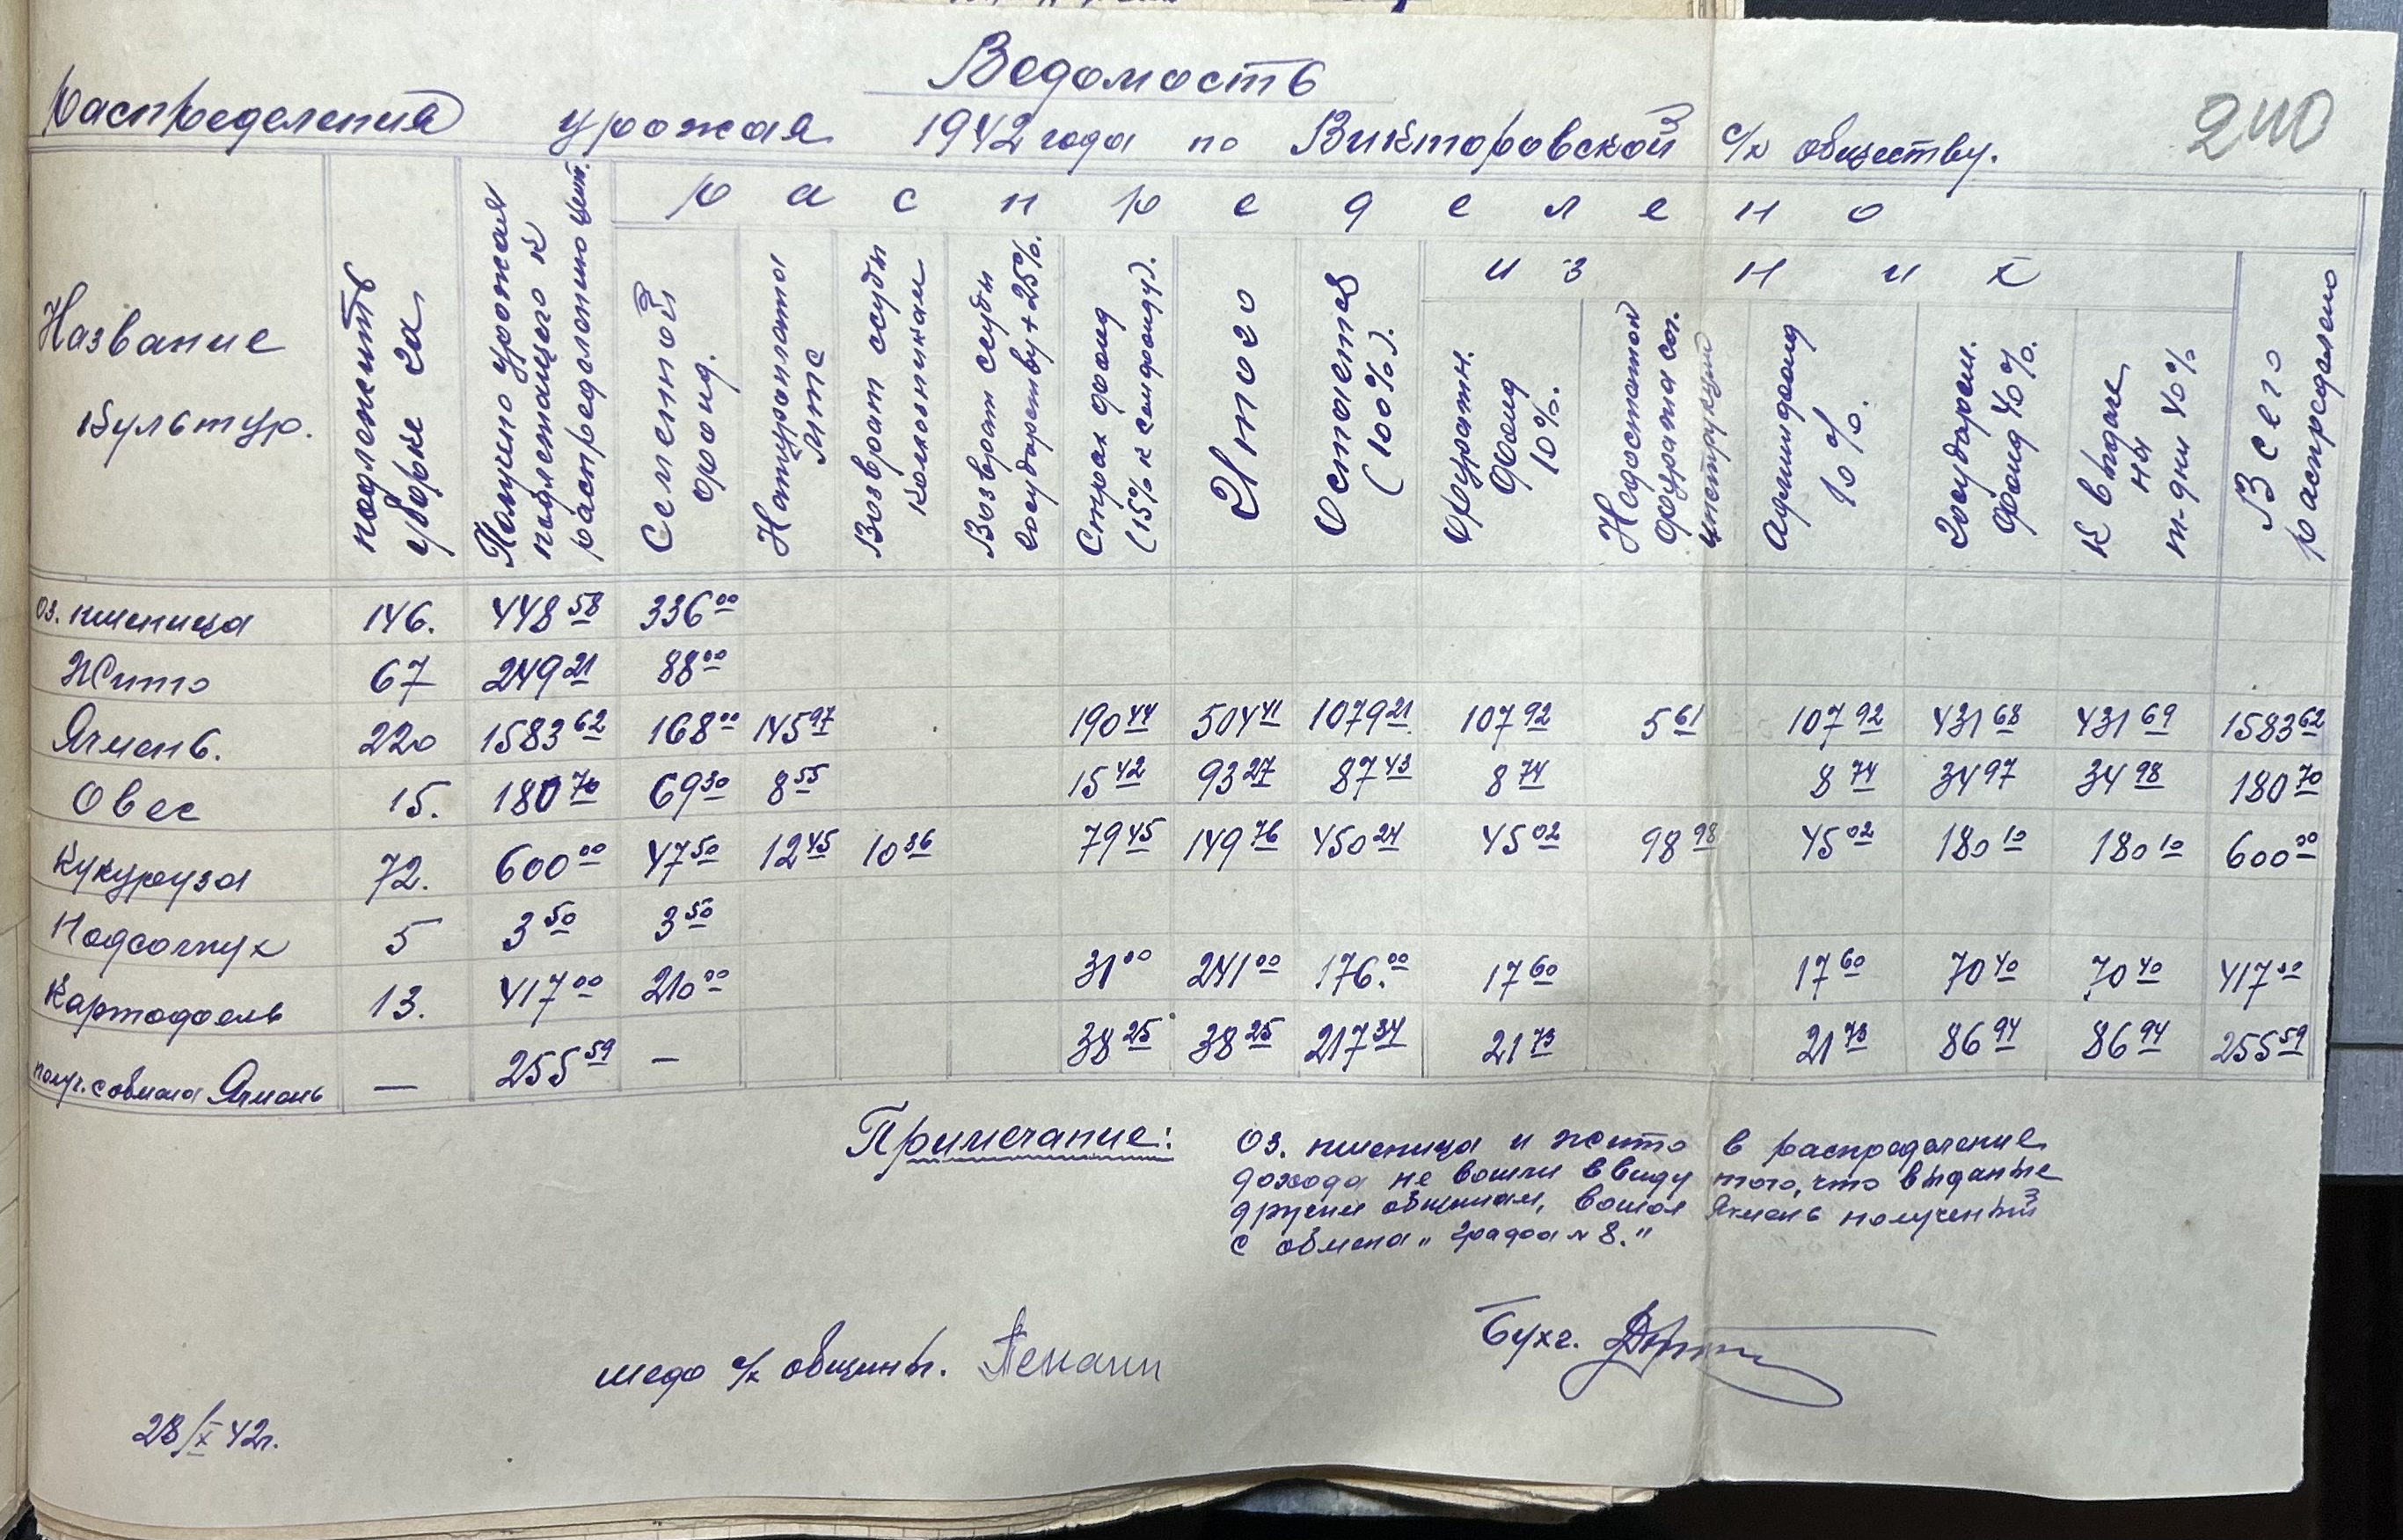 Ведомость
распределения урожая 1942 года по Викторовской с/х обществу.
240
Название культур.
подлежит уборке га
Получено урожая подлежащего к распределению цент.
распределено
Семенной фонд.
Натуроплата МТС
Возврат ссуды колхозникам
Возврат ссуды государству + 25%.
Страх фонд (15% к семфонду).
Итого
Остаток (100%).
из них
Фуражн. фонд 10%.
Недостаток фуража сог. инструкции
Админфонд 10%.
Государств. фонд 40%.
К выдаче на т-дни 40%
Всего распределено
оз. пшеница 146. 448 58 336 00
Жито 67 249 21 88 00
Ячмень. 220 1583 62 168 00 145 97 190 44 504 41 1079 21 107 92 5 61 107 92 431 68 431 69 1583 62
Овес 15. 180 70 69 30 8 55 15 42 93 27 87 43 8 74 8 74 34 97 34 98 180 70
Кукуруза 72. 600 00 47 50 12 45 10 36 79 45 149 76 450 24 45 02 98 98 45 02 180 10 180 10 600 00
Подсолнух 5 3 50 3 50
Картофель 13. 417 00 210 00 31 00 241 00 176. 00 17 60 17 60 70 40 70 40 417 00
получ. с обмена Ячмень — 255 59 — 38 25 38 25 217 34 21 73 21 73 86 94 86 94 255 59
Примечание:
Оз. пшеница и жито в распределение
дохода не вошли ввиду того, что выданые
другим общинам, вошол Ячмень полученый
с обмена „графа № 8."
с/х общины.
Бухг.
28/X 42г.